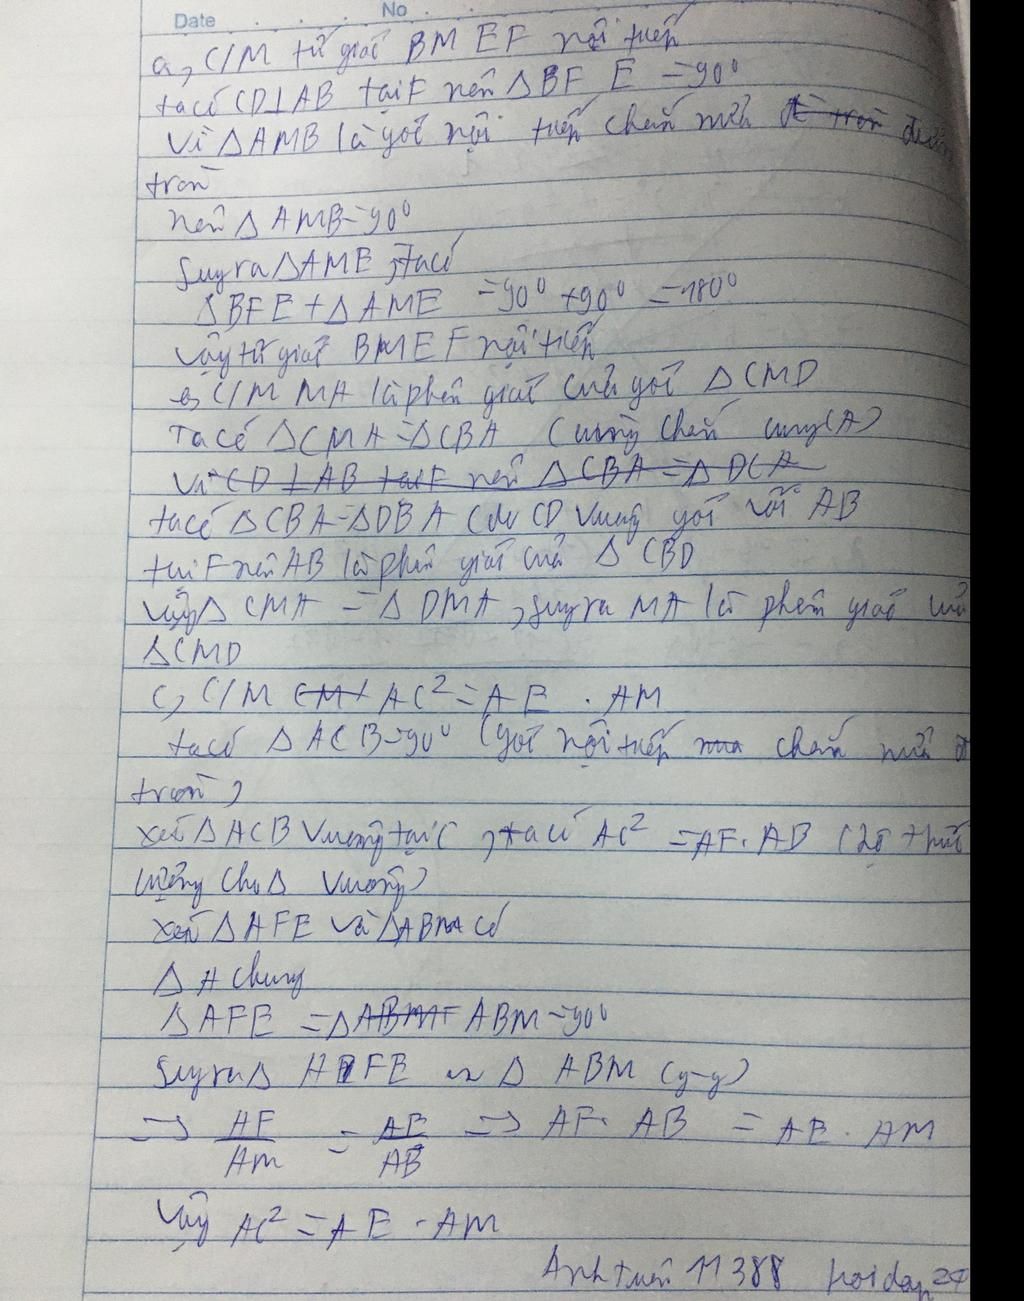 Date No
a, C/M tứ giác BMEF nội tiếp
ta có CD⊥AB tại F nên ΔBF E = 90⁰
Vì ΔAMB là góc nội tiếp chắn nửa đường
tròn
nên Δ AMB=90⁰
Suy ra ΔAME, ta có
ΔBFE + ΔAME = 90⁰ + 90⁰ = 180⁰
Vậy tứ giác BMEF nội tiếp
C/M MA là phân giác của góc ΔCMD
Ta có ΔCMA = ΔCBA (cùng chắn cung CA)
Vì CD ⊥ AB tại F nên ΔCBA = Δ DCA
ta có ΔCBA = ΔDBA (do CD vuông góc với AB
tại F nên AB là phân giác của Δ CBD
Vậy Δ CMA = Δ DMA, suy ra MA là phân giác của
ΔCMD
C, C/M CM⊥ AC² = AE . AM
ta có Δ ACB = 90⁰ (góc nội tiếp chắn nửa đ
tròn)
xét ΔACB vuông tại C, ta có AC² = AF. AB (hệ thức
lượng cho Δ vuông)
xét ΔAFE và ΔABM có
Δ A chung
ΔAFE = Δ ABM = 90⁰
Suy ra Δ AFE ∽ Δ ABM (g-g)
=> AF/AM = AE/AB => AF. AB = AE . AM
Vậy AC² = AE . AM
Anh tuấn 11388 hoidap 24